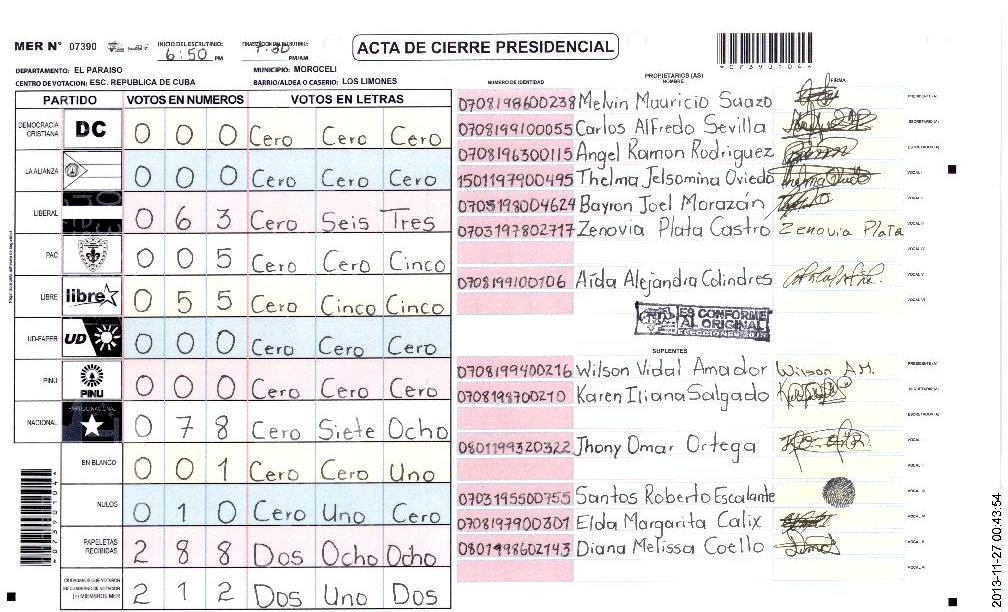 MER N° 07390
INICIO DEL ESCRUTINIO: 6:50 PM
7:30 PM/AM
ACTA DE CIERRE PRESIDENCIAL
*07390104*
DEPARTAMENTO: EL PARAISO
MUNICIPIO: MOROCELI
CENTRO DE VOTACION: ESC. REPUBLICA DE CUBA
BARRIO/ALDEA O CASERIO: LOS LIMONES
PARTIDO VOTOS EN NUMEROS VOTOS EN LETRAS
DEMOCRACIA CRISTIANA DC 0 0 0 Cero Cero Cero
LA ALIANZA 0 0 0 Cero Cero Cero
LIBERAL 0 6 3 Cero Seis Tres
PAC 0 0 5 Cero Cero Cinco
LIBRE libre 0 5 5 Cero Cinco Cinco
UD-FAPER UD 0 0 0 Cero Cero Cero
PINU PINU 0 0 0 Cero Cero Cero
NACIONAL PARTIDO NACIONAL 0 7 8 Cero Siete Ocho
EN BLANCO 0 0 1 Cero Cero Uno
NULOS 0 1 0 Cero Uno Cero
PAPELETAS RECIBIDAS 2 8 8 Dos Ocho Ocho
CIUDADANOS QUE VOTARON EN CUADERNO DE VOTACION (+) MIEMBROS MER 2 1 2 Dos Uno Dos
*07390104*
PROPIETARIOS (AS)
NUMERO DE IDENTIDAD NOMBRE FIRMA
0708198600238 Melvin Mauricio Suazo PRESIDENTE (A)
0708199100055 Carlos Alfredo Sevilla SECRETARIO (A)
0708196300115 Angel Ramon Rodriguez ESCRUTADOR (A)
1501197900495 Thelma Jelsomina Oviedo Thelma Oviedo VOCAL I
0703198004624 Bayron Joel Morazán VOCAL II
0703197802717 Zenovia Plata Castro Zenovia Plata VOCAL III
VOCAL IV
0708199100106 Aída Alejandra Colindres VOCAL V
VOCAL VI
ES CONFORME AL ORIGINAL
SUPLENTES
0708199400216 Wilson Vidal Amador Wilson A.M. PRESIDENTE (A)
0708199700210 Karen Iliana Salgado SECRETARIO (A)
ESCRUTADOR (A)
0801199320322 Jhony Omar Ortega VOCAL I
VOCAL II
0703195500755 Santos Roberto Escalante VOCAL III
0708197900301 Elda Margarita Calix VOCAL IV
0801998602143 Diana Melissa Coello VOCAL V
VOCAL VI
2013-11-27 00:43:54